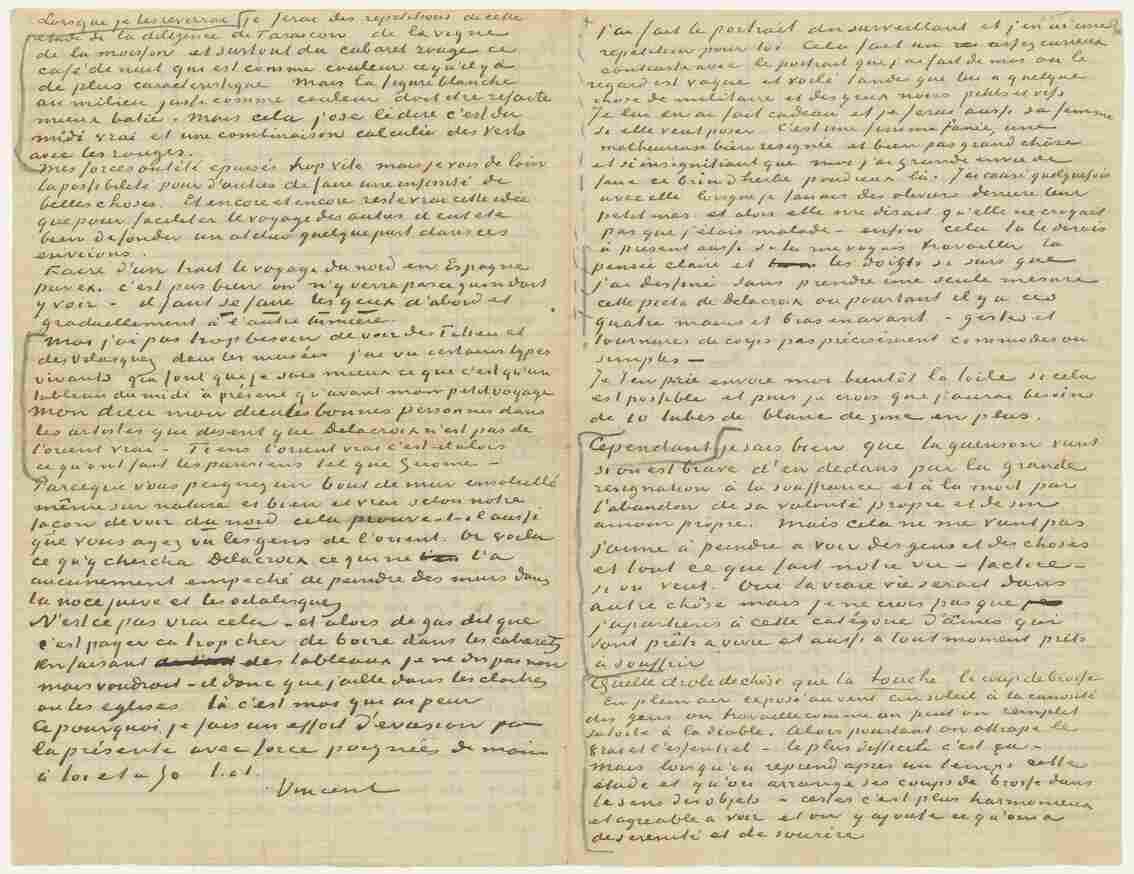 Lorsque je les reverrai je ferai des repetitions de cette
etude de la diligence de Tarascon de la vigne
de la moisson et surtout du cabaret rouge ce
café de nuit qui est comme couleur ce qu'il y a
de plus caracteristique Mais la figure blanche
au milieu juste comme couleur doit etre refaite
mieux batie. Mais cela j'ose le dire c'est du
midi vrai et une combinaison calculée des verts
avec les rouges.
Mes forces ont été epuisés trop vite mais je vois de loin
la possibilité pour d'autres de faire une infinité de
belles choses. Et encore et encore reste vrai cette idée
que pour faciliter le voyage des autres il eut eté
bien de fonder un atelier quelque part dans ces
environs.
Faire d'un trait le voyage du nord en Espagne
par ex. c'est pas bien on n'y verra pas ce qu'on doit
y voir – il faut se faire les yeux d'abord et
graduellement à l'autre lumière.
Moi j'ai pas trop besoin de voir des Titien et
des Velasquez dans les musées j'ai vu certains types
vivants qui font que je sais mieux ce que c'est qu'un
tableau du midi à présent qu'avant mon petit voyage
Mon dieu mon dieu les bonnes personnes dans
les artistes qui disent que Delacroix n'est pas de
l'orient vrai – Tiens l'orient vrai c'est alors
ce qu'ont fait les parisiens tel que Gerome –
Parceque vous peignez un bout de mur ensoleillé
même sur nature et bien et vrai selon notre
façon de voir du nord cela prouve-t-il aussi
que vous ayez vu les gens de l'orient. Or voila
ce qu'y chercha Delacroix ce qui ne l'a
aucunement empeché de peindre des murs dans
la noce juive et les odalisques
N'est ce pas vrai cela – et alors de gas dit que
c'est payer ca trop cher de boire dans les cabarets
en faisant des tableaux je ne dis pas non
mais voudrait-il donc que j'aille dans les cloitres
ou les eglises là c'est moi qui ai peur
Ce pourquoi je fais un effort d'evasion par
la présente avec force poignées de main
à toi et a Jo t. à t.
Vincent
J'ai fait le portrait du surveillant et j'en ai une
repetition pour toi Cela fait un assez curieux
contraste avec le portrait que j'ai fait de moi ou le
regard est vague et voilé tandis que lui a quelque
chose de militaire et des yeux noirs petits et vifs
Je lui en ai fait cadeau et je ferai aussi sa femme
si elle veut poser C'est une femme fanée, une
malheureuse bien resignée et bien pas grand chôse
et si insignifiant que moi j'ai grande envie de
faire ce brin d'herbe poudreux là. J'ai causé quelquefois
avec elle lorsque je faisais des oliviers derriere leur
petit mas et alors elle me disait qu'elle ne croyait
pas que j'étais malade – enfin cela tu le dirais
à présent aussi si tu me voyais travailler la
pensée claire et les doigts si surs que
j'ai dessiné sans prendre une seule mesure
cette pieta de Delacroix ou pourtant il y a ces
quatre mains et bras en avant – gestes et
tournures de corps pas précisement commodes ou
simples –
Je t'en prie envoie moi bientôt la toile si cela
est possible et puis je crois que j'aurai besoin
de 10 tubes de blanc de zinc en plus.
Cependant je sais bien que la guerison vient
si on est brave d'en dedans par la grande
resignation à la souffrance et à la mort par
l'abandon de sa volonté propre et de son
amour propre. Mais cela ne me vient pas
j'aime à peindre a voir des gens et des choses
et tout ce que fait notre vie – factice –
si on veut. Oui la vraie vie serait dans
autre chôse mais je ne crois pas que
j'appartienne à cette catégorie d'âmes qui
sont prêts a vivre et aussi a tout moment prêts
à souffrir
Quelle drole de chose que la touche le coup de brosse
En plein air exposé au vent au soleil à la curiosité
des gens on travaille comme on peut on remplit
sa toile à la diable. Alors pourtant on attrape le
vrai et l'essentiel – le plus difficile c'est ça –
Mais lorsqu'on reprend après un temps cette
étude et qu'on arrange ses coups de brosse dans
le sens des objets – certes c'est plus harmonieux
et agréable a voir et on y ajoute ce qu'on a
de serenité et de sourire